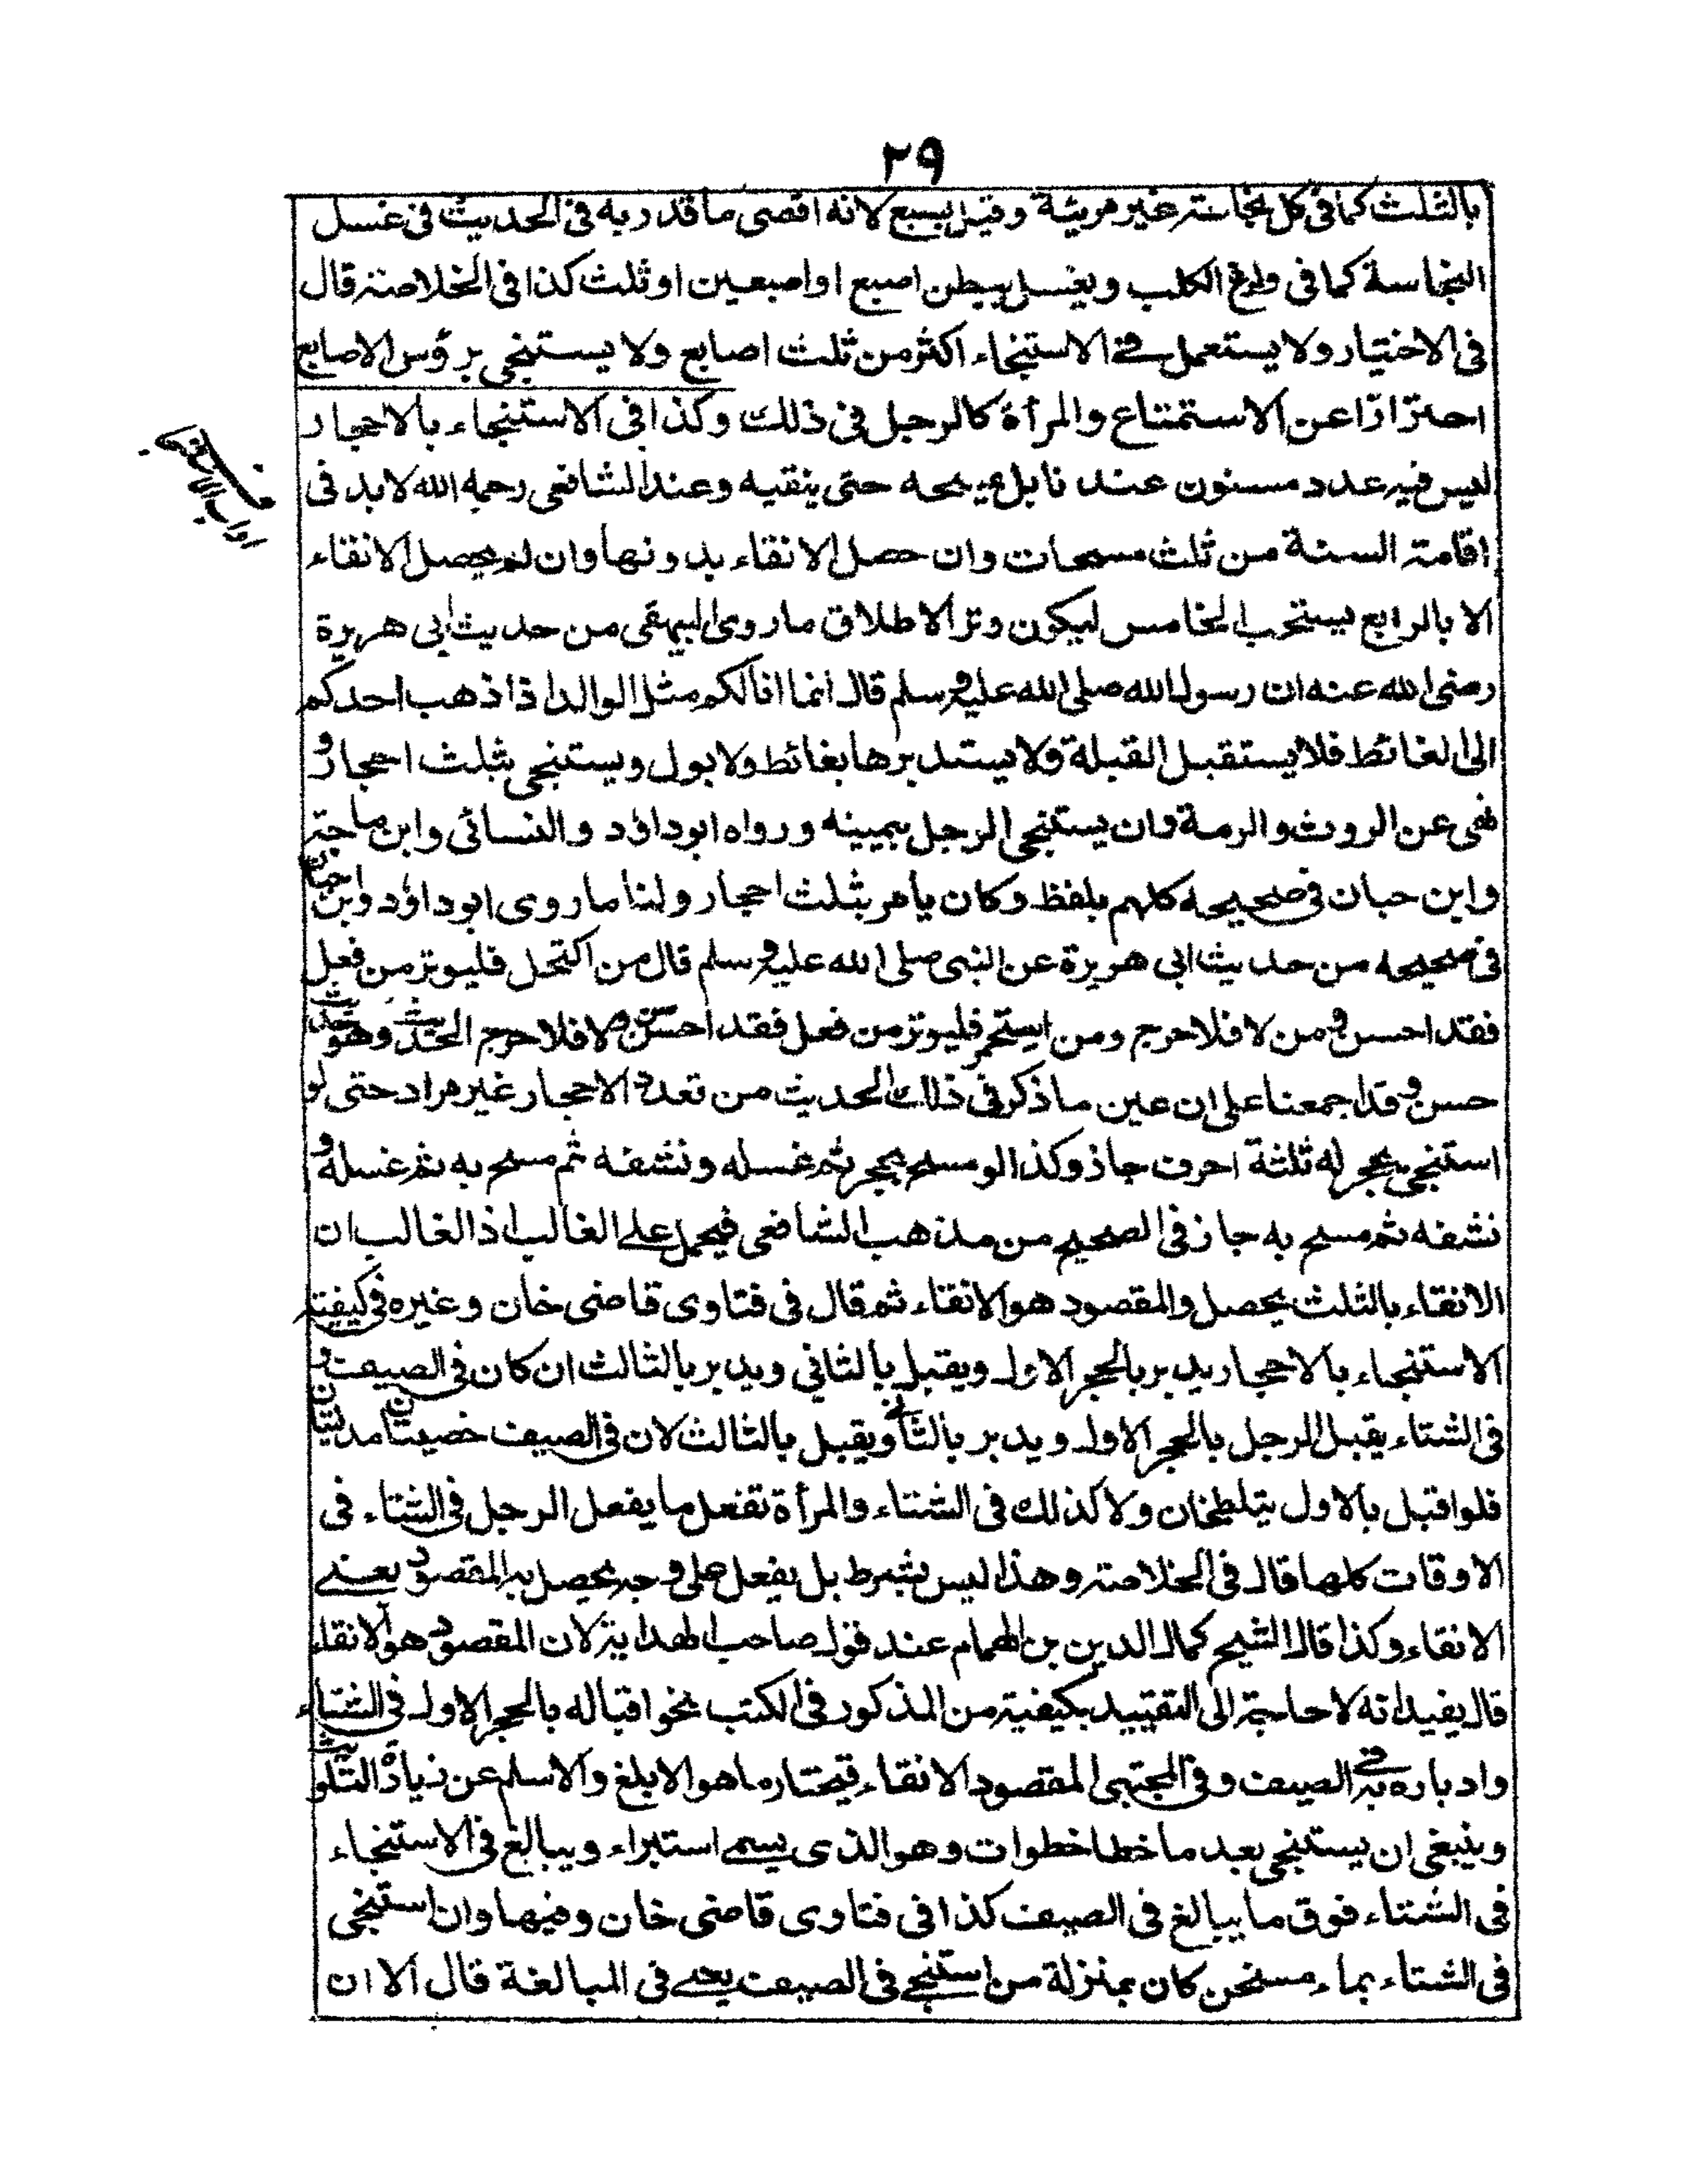 ٢٩
بالثلث كما فى كل نجاسة غير مرئية وقيل بسبع لانه اقصى ما قدر به فى الحديث فى غسل
النجاسة كما فى ولوغ الكلب ويغسل ببطن اصبع او اصبعين او ثلث كذا فى الخلاصة قال
فى الاختيار ولا يستعمل فى الاستنجاء اكثر من ثلث اصابع ولا يستنجى برؤس الاصابع
احترازا عن الاستمتاع والمرأة كالرجل فى ذلك وكذا فى الاستنجاء بالاحجار
ليس فيه عدد مسنون عندنا بل يمسحه حتى ينقيه وعند الشافعى رحمه الله لابد فى
اقامة السنة من ثلث مسحات وان حصل الانقاء بدونها وان لم يحصل الانقاء
الا بالرابع يستحب الخامس ليكون وترا لاطلاق ما روى البيهقى من حديث ابى هريرة
رضى الله عنه ان رسول الله صلى الله عليه وسلم قال انما انا لكم مثل الوالد اذا ذهب احدكم
الى الغائط فلا يستقبل القبلة ولا يستدبرها بغائط ولا بول ويستنجى بثلث احجار و
نهى عن الروث والرمة وان يستنجى الرجل بيمينه ورواه ابوداؤد والنسائى وابن ماجة
وابن حبان فى صحيحه كلهم بلفظ وكان يامر بثلث احجار ولنا ما روى ابوداؤد وابن حبان
فى صحيحه من حديث ابى هريرة عن النبى صلى الله عليه وسلم قال من اكتحل فليوتر من فعل
فقد احسن ومن لا فلا حرج ومن استجمر فليوتر من فعل فقد احسن ومن لا فلا حرج الحديث وهو حديث
حسن وقد اجمعنا على ان عين ما ذكر فى ذلك الحديث من تعدد الاحجار غير مراد حتى لو
استنجى بحجر له ثلثة احرف جاز وكذا لو مسح بحجر ثم غسله ونشفه ثم مسح به ثم غسله و
نشفه ثم مسح به جاز فى الصحيح من مذهب الشافعى فيحمل على الغالب اذ الغالب ان
الانقاء بالثلث يحصل والمقصود هو الانقاء ثم قال فى فتاوى قاضى خان وغيره فى كيفية
الاستنجاء بالاحجار يدبر بالحجر الاول ويقبل بالثانى ويدبر بالثالث ان كان فى الصيف و
فى الشتاء يقبل الرجل بالحجر الاول ويدبر بالثانى ويقبل بالثالث لان فى الصيف خصيتان مدليتان
فلو اقبل بالاول يتلطخان ولا كذلك فى الشتاء والمرأة تفعل ما يفعل الرجل فى الشتاء فى
الاوقات كلها قال فى الخلاصة وهذا ليس بشرط بل يفعل على وجه يحصل به المقصود يعنى
الانقاء وكذا قال الشيخ كمال الدين بن الهمام عند قول صاحب الهداية لان المقصود هو الانقاء
قال يفيد انه لا حاجة الى التقييد بكيفية من المذكور فى الكتب نحو اقباله بالحجر الاول فى الشتاء
وادباره به فى الصيف وفى المجتبى المقصود الانقاء فيختار ما هو الابلغ والاسلم عن زيادة التلويث
وينبغى ان يستنجى بعد ما خطا خطوات وهو الذى يسمى استبراء ويبالغ فى الاستنجاء
فى الشتاء فوق ما يبالغ فى الصيف كذا فى فتاوى قاضى خان وفيها وان استنجى
فى الشتاء بماء مسخن كان بمنزلة من استنجى فى الصيف يعنى فى المبالغة قال الا ان